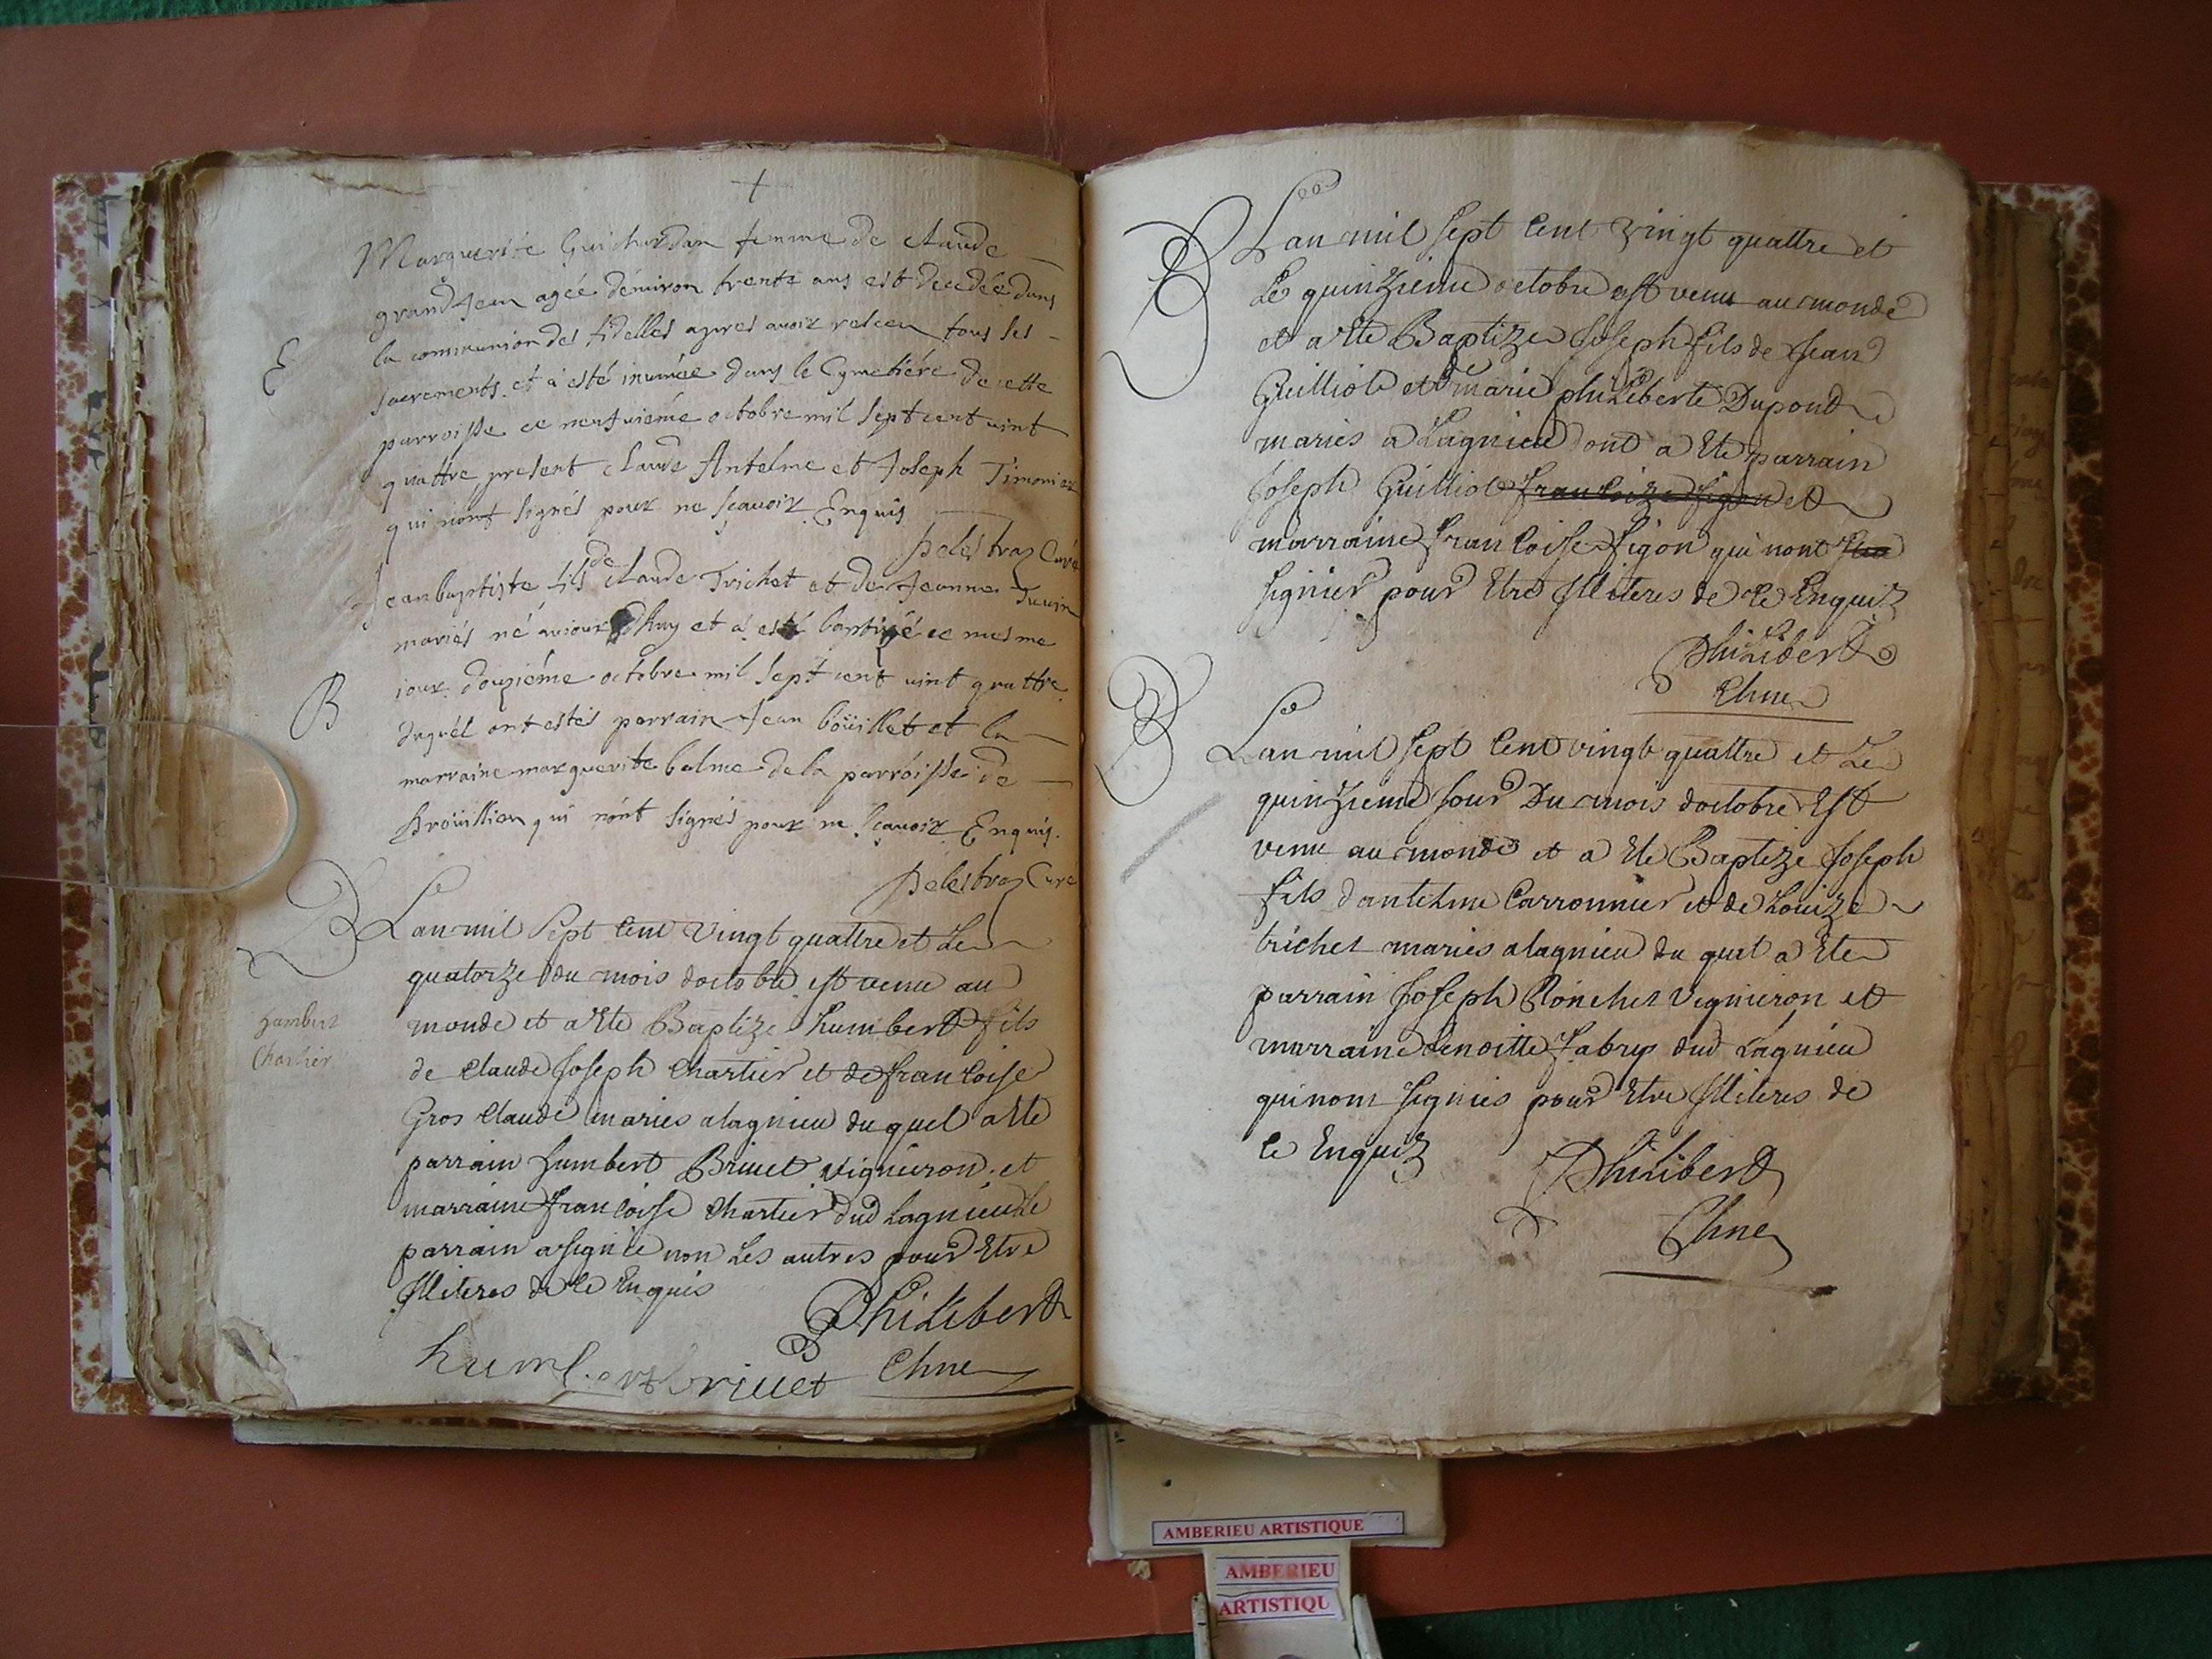 +
Marguerite Guichardan femme de claude
grand Jean agée dénuiron trente ans est decedée dans
la communion des fidelles apres auoir receu tous ses
sacrements et à esté inumée dans le Cymetiére de cette
E
parroisse ce neufuiéme octobre mil sept cent uint
quattre, present claude Antelme et Joseph Timonier
qui nont signés pour ne sçauoir Enquis
Delestraz Curé
Jean baptiste fils de claude Trichet et de Jeanne
mariés né auiourdhuy et à esté baptisé ce mesme
iour douziéme octobre mil sept cent uint quattre
B
duquél ont estés parrain Jean boüillet et la
marraine marguerite balme de la parroisse de
qui nont signés pour ne sçauoir Enquis.
Delestraz Curé
B
Lan mil sept Cent Vingt quattre et Le
quatorze du mois doctobre est venu au
monde et a Ete Baptize humbert fils
humbert
Chartier
de Claude Joseph Chartier et de francoise
Gros Claude maries a lagnieu du quel a Ete
parrain humbert Briuet vigneron et
marraine francoise Chartier dud Lagnieu Le
parrain a signé non Les autres pour Etre
Illiteres de Ce Enquis
Philibert
humbert briuet
B
Lan mil sept Cent vingt quattre et
Le quinzieme octobre est venu au monde
et a Ete Baptize Joseph fils de Jean
Guilliot et de marie philiberte Dupont
maries a Lagnieu dont a Ete parrain
Joseph Guilliot francoize figon et
marraine francoise figon qui nont
signier pour Etre Illiteres de Ce Enquiz
Philibert
B
Lan mil sept Cent vingt quattre et Le
quinzieme Jour Du mois doctobre Est
venu au monde et a Ete Baptize Joseph
fils dantelme Carronnier et de Louize
trichet maries a lagnieu du quel a Ete
parrain Joseph Ponchet vigneron et
marraine benoitte fabry dud Lagnieu
qui nont signies pour Etre Illiteres de
Ce Enquiz
Philibert
AMBERIEU ARTISTIQUE
AMBERIEU
ARTISTIQU